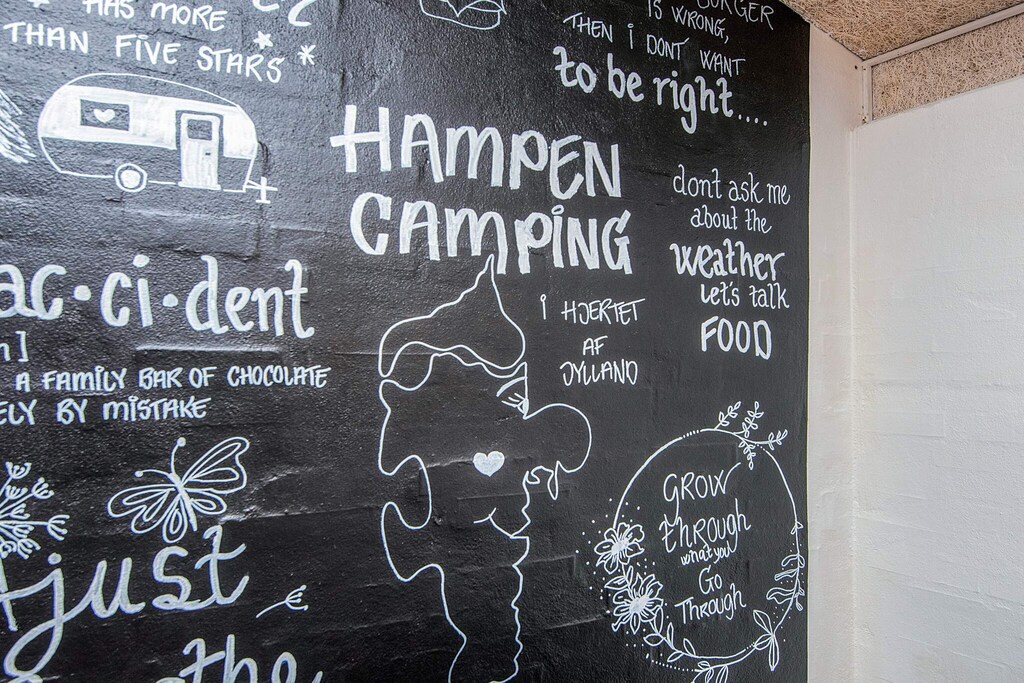 HAS MORE
THAN FIVE STARS
BURGER
IS WRONG,
THEN I DONT WANT
to be right....
HAMPEN
CAMPING
dont ask me
about the
weather
Let's talk
FOOD
I HJERTET
AF
JYLLAND
ac·ci·dent
n]
A FAMILY BAR OF CHOCOLATE
ELY BY MISTAKE
just
the
GROW
through
what you
Go
Through